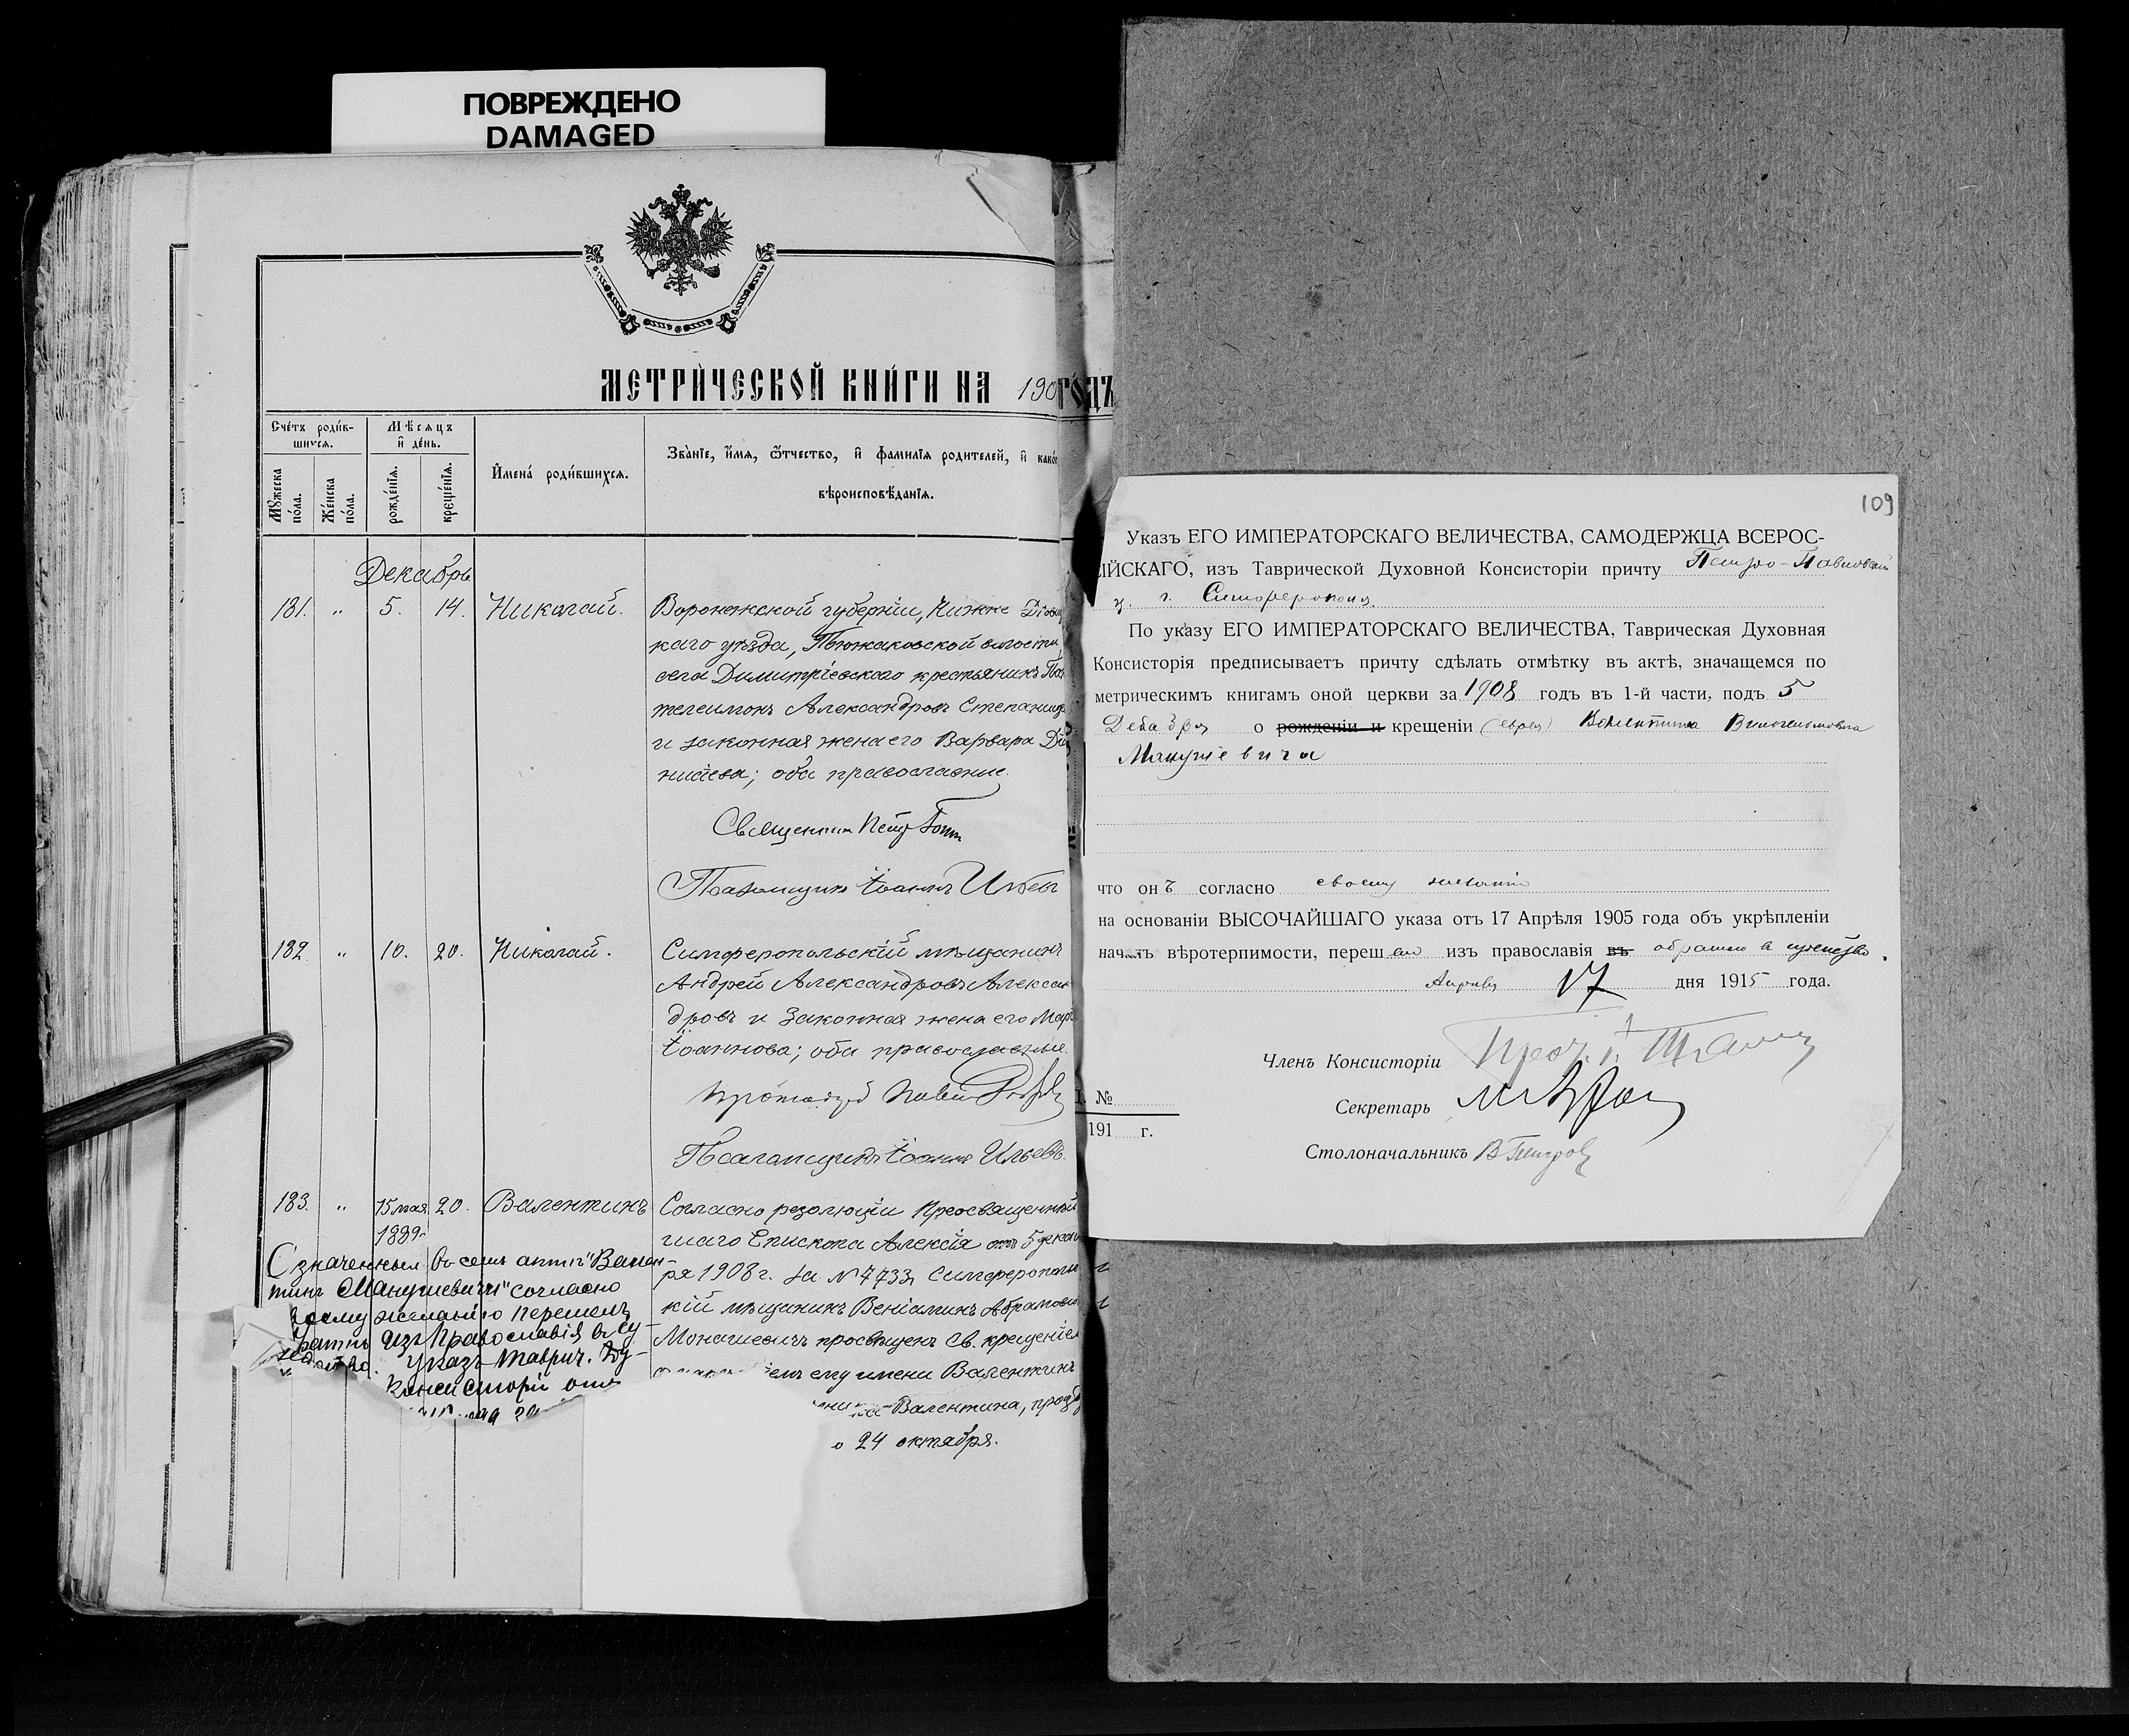 ПОВРЕЖДЕНО
DAMAGED
МЕТРИ́ЧЕСКОЙ КНИ́ГИ НА 190 ГО́ДЪ
Счетъ роди́в-
шихся.
Мѣсяцъ
и̂ де́нь.
Мꙋжеска
по́ла.
Же́нска
по́ла.
рожде́нїя.
креще́нїя.
И̂мена́ роди́вшихся.
Зва́нїе, и̂́мя, ѻ̂́тчество, и̂ фамилїя родителей, и̂ како́г
вѣроисповѣ́данїя.
Декабрь
181. " 5. 14. Николай. Воронежской губерніи, Нижне Дѣвиц
каго уѣзда, волости,
села Димитріевскаго крестьянинъ Пан
телеимонъ Александровъ
и законная жена его Варвара Діо
нисіева; оба православные.
Священник Петр
Псаломщикъ Іоаннъ Ильевъ
182. " 10. 20. Николай. Симферопольскій мѣщанинъ
Андрей Александровъ Алексан
дровъ и законная жена его Мар
Іоаннова; оба православные.
Протоіерей Павел
Псаломщикъ Іоаннъ Ильевъ.
183. " 15 мая 20. Валентинъ Согласно резолюціи Преосвященнѣй
1889г. шаго Епископа Алексія отъ 5 декаб
ря 1908 г. за № 7733, Симферопольс
кій мѣщанинъ Веніаминъ Абрамовъ
Монашевичъ просвѣщенъ Св. крещеніем
ему имени Валентинъ
Валентина, празд
о 24 октября.
Означенный въ семъ актѣ "Вален-
тинъ Манушевичъ" согласно
своему желанію перешелъ
обратно изъ Православія въ іу-
действо. Указъ Таврич. Ду-
Консисторіи отъ
109
Указъ ЕГО ИМПЕРАТОРСКАГО ВЕЛИЧЕСТВА, САМОДЕРЖЦА ВСЕРОС-
ІЙСКАГО, изъ Таврической Духовной Консисторіи причту Петро-Павловской
ц. г. Симферополя.
По указу ЕГО ИМПЕРАТОРСКАГО ВЕЛИЧЕСТВА, Таврическая Духовная
Консисторія предписываетъ причту сдѣлать отмѣтку въ актѣ, значащемся по
метрическимъ книгамъ оной церкви за 1908 годъ въ 1-й части, подъ 5
Декабря о рожденіи и крещеніи (еврея) Валентина Вениаминовича
Манушевича
что онъ согласно своему желанію
на основаніи ВЫСОЧАЙШАГО указа отъ 17 Апрѣля 1905 года объ укрѣпленіи
началъ вѣротерпимости, перешелъ изъ православія въ обратно в іудейство.
Апрѣля 17 дня 1915 года.
Членъ Консисторіи Прот. І.
Секретарь
Столоначальникъ В Петров
№
191 г.